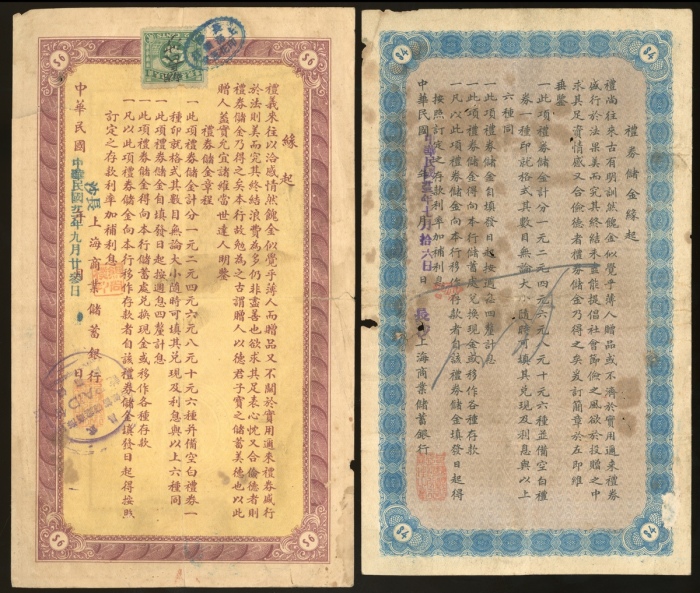 56
緣起
禮義來往以洽感情然餽金似覺乎薄人而贈品又不關於實用邇來禮券盛行
於法則美而究其終結浪費為多仍非盡善也欲求其足表心忱又合儉德者則
禮券儲金乃得之矣本行故勉為之古謂贈人以德君子寶之儲蓄美德也以此
贈人蓋實允宜諸維當世達人明鑒
禮券儲金章程
一此項禮券儲金計分一元二元四元六元八元十元六種并備空白禮券一
種印就格式其數目無論大小隨時可填其兌現及利息與以上六種同
一此項禮券儲金自填發日起按週息四釐計息
一此項禮券儲金得向本行儲蓄處兌換現金或移作各種存款
一凡以此項禮券儲金向本行移作存款者自該禮券儲金填發日起得按照
訂定之存款利率加補利息
上海商業儲蓄銀行
中華民國
日
年九月廿參日
PAID
56
56
56
84
禮券儲金緣起
禮尚往來古有明訓然餽金似覺乎薄人贈品或不濟於實用邇來禮券
盛行於法果美而究其終結未盡能提倡社會節儉之風欲於投贈之中
求其足資情感又合儉德者禮券儲金乃得之矣爰訂簡章於左即維
垂鑒
一此項禮券儲金計分一元二元四元六元八元十元六種並備空白禮
券一種印就格式其數目無論大小隨時可填其兌現及利息與以上
六種同
一此項禮券儲金自填發日起按週息四釐計息
一此項禮券儲金得向本行儲蓄處兌換現金或移作各種存款
一凡以此項禮券儲金向本行移作存款者自該禮券儲金填發日起得
按照訂定之存款利率加補利息
上海商業儲蓄銀行
中華民國
日
月拾六日
84
84
84